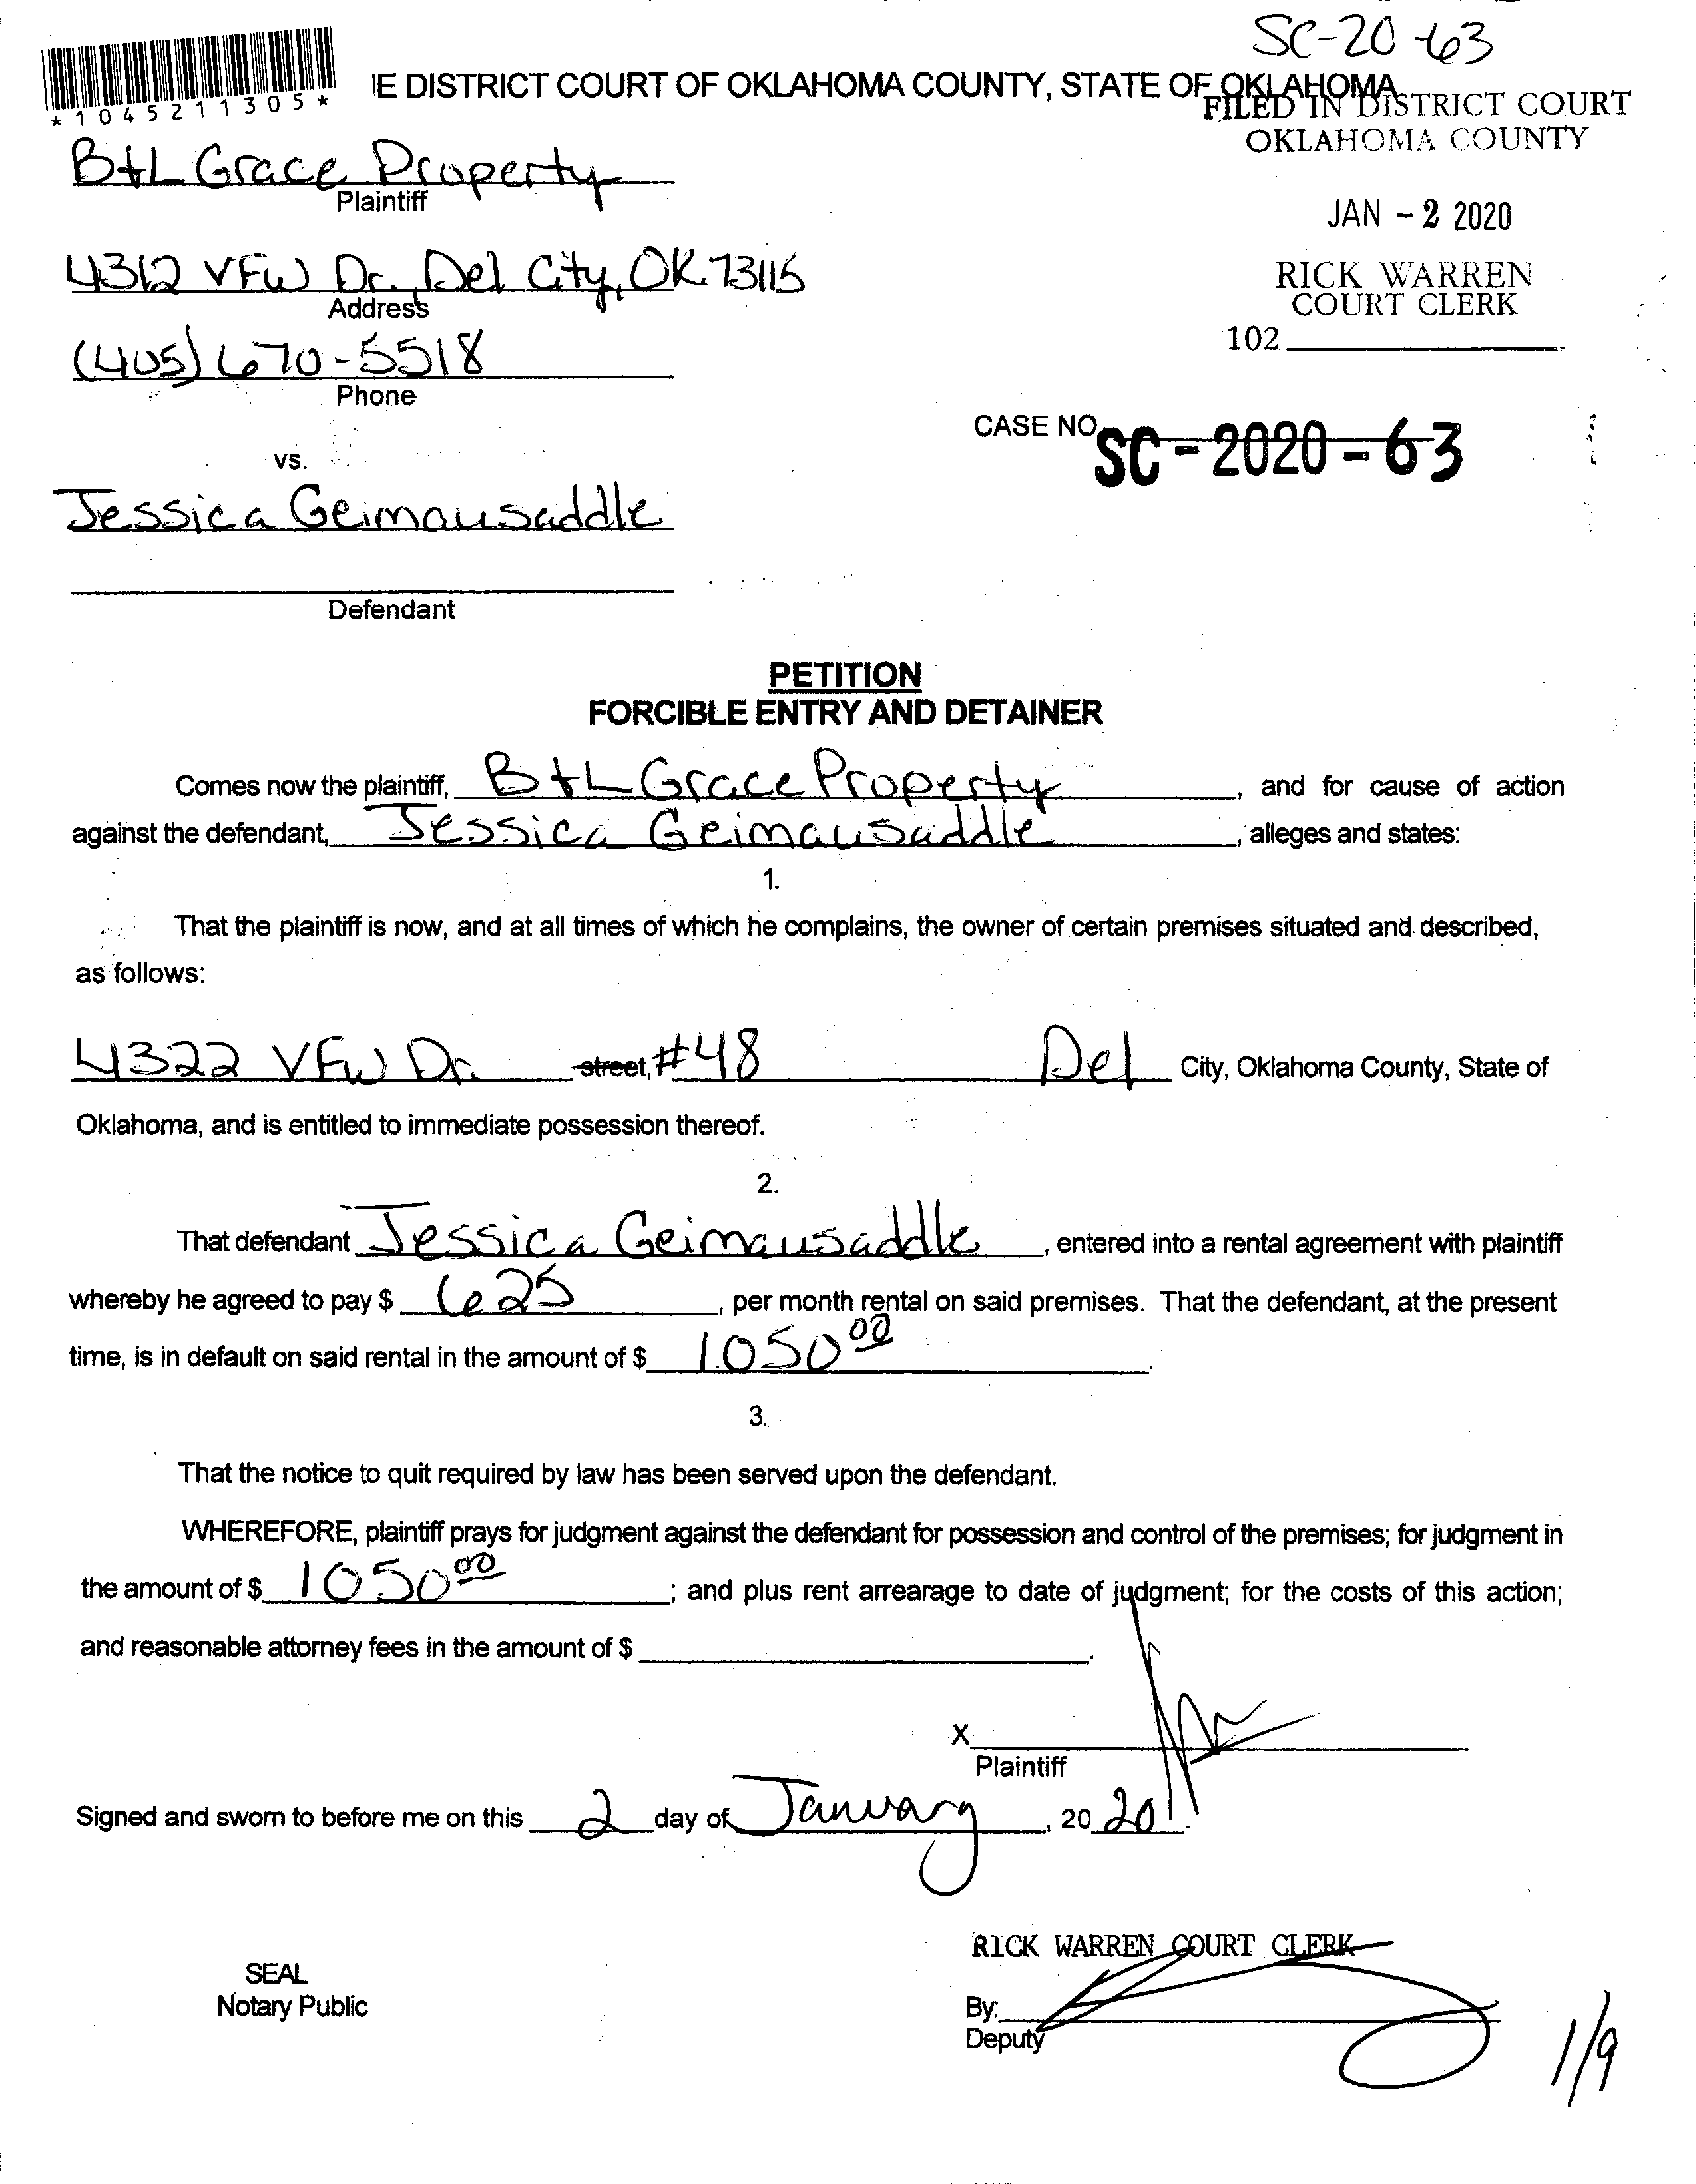 SC-20-63
*1045211305*
IE DISTRICT COURT OF OKLAHOMA COUNTY, STATE OF OKLAHOMA
FILED IN DISTRICT COURT
OKLAHOMA COUNTY
B+L Grace Property
Plaintiff
JAN - 2 2020
4312 VFW Dr. Del City, OK 73115
Address
RICK WARREN
COURT CLERK
102
(405) 670-5518
Phone
CASE NO. SC - 2020 - 63
vs.
Jessica Geimausaddle
Defendant
PETITION
FORCIBLE ENTRY AND DETAINER
Comes now the plaintiff, B+L Grace Property, and for cause of action
against the defendant, Jessica Geimausaddle, alleges and states:
1.
That the plaintiff is now, and at all times of which he complains, the owner of certain premises situated and described,
as follows:
4322 VFW Dr. street, #48 Del City, Oklahoma County, State of
Oklahoma, and is entitled to immediate possession thereof.
2.
That defendant Jessica Geimausaddle, entered into a rental agreement with plaintiff
whereby he agreed to pay $ 625, per month rental on said premises. That the defendant, at the present
time, is in default on said rental in the amount of $ 1050.00.
3.
That the notice to quit required by law has been served upon the defendant.
WHEREFORE, plaintiff prays for judgment against the defendant for possession and control of the premises; for judgment in
the amount of $ 1050.00; and plus rent arrearage to date of judgment; for the costs of this action;
and reasonable attorney fees in the amount of $ .
X
Plaintiff
Signed and sworn to before me on this 2 day of January, 20 20.
RICK WARREN COURT CLERK
SEAL
Notary Public
By:
Deputy
1/9